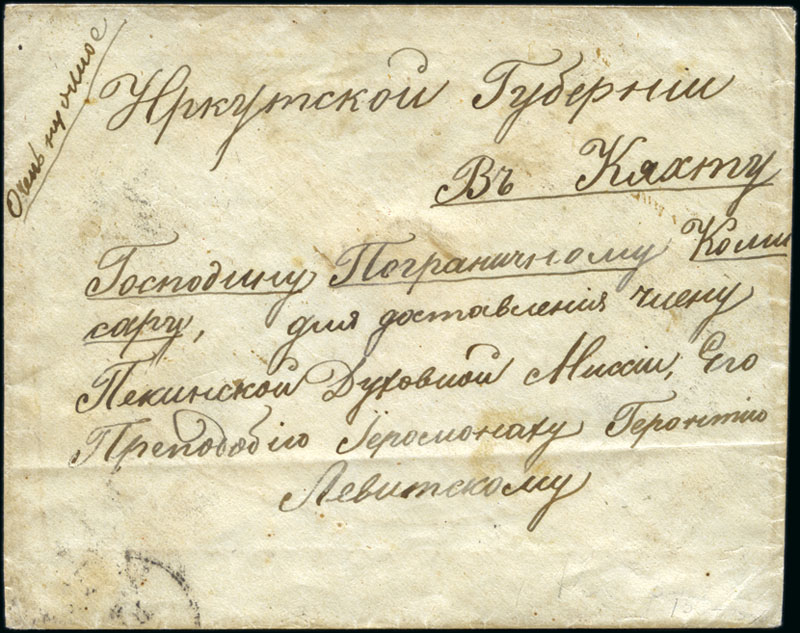 Очень нужное
Иркутской Губернiи
Въ Кяхту
Господину Пограничному Коми
сару, для доставленiя члену
Пекинской Духовной Миссiи, Его
Преподобiю Iеромонаху Геронтiю
Левитскому